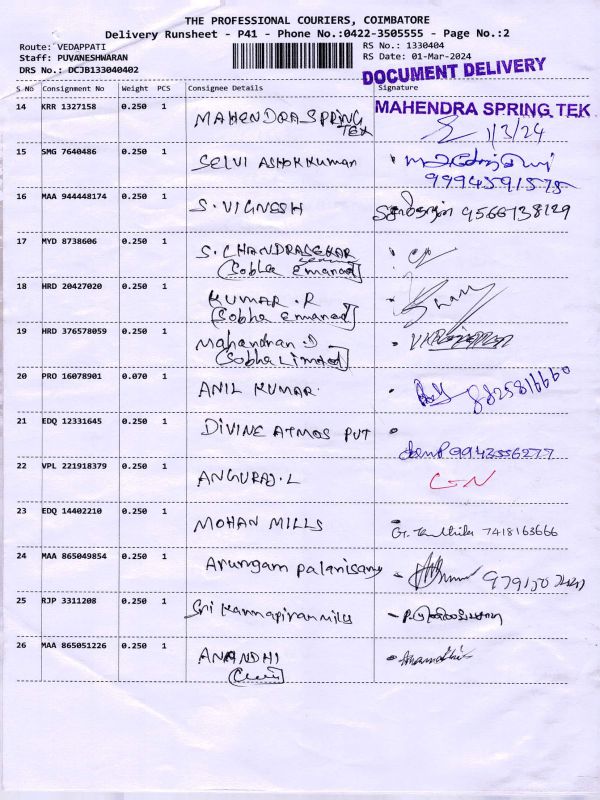 THE PROFESSIONAL COURIERS, COIMBATORE
Delivery Runsheet - P41 - Phone No.:0422-3505555 - Page No.:2
Route: VEDAPPATI
RS No.: 1330404
Staff: PUVANESHWARAN
RS Date: 01-Mar-2024
DRS No.: DCJB133040402
DOCUMENT DELIVERY
S No Consignment No Weight PCS Consignee Details Signature
14 KRR 1327158 0.250 1 MAHENDRA SPRING TEK MAHENDRA SPRING TEK
1/3/24
15 SMG 7640486 0.250 1 SELVI ASHOKKUMAR
9994591575
16 MAA 944448174 0.250 1 S. VIGNESH 9566738129
17 MYD 8738606 0.250 1 S. CHANDRASEKAR
(Sobha Emanad]
18 HRD 20427020 0.250 1 KUMAR.R
[Sobha Emanad]
19 HRD 376578059 0.250 1 Mahandran.D
[Sobha Limited]
20 PRO 16078901 0.070 1 ANIL KUMAR. 8825816660
21 EDQ 12331645 0.250 1 DIVINE ATMOS PVT
9943556277
22 VPL 221918379 0.250 1 ANGURAJ.L
23 EDQ 14402210 0.250 1 MOHAN MILLS 7418163666
24 MAA 865049854 0.250 1 Arungam palanisamy
25 RJP 3311208 0.250 1 Sri Kannapiran mills
26 MAA 865051226 0.250 1 ANANDHI Anandhi